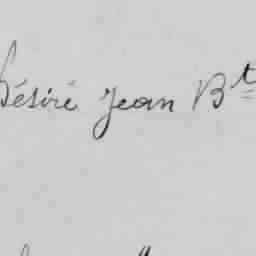 Désiré Jean Bt